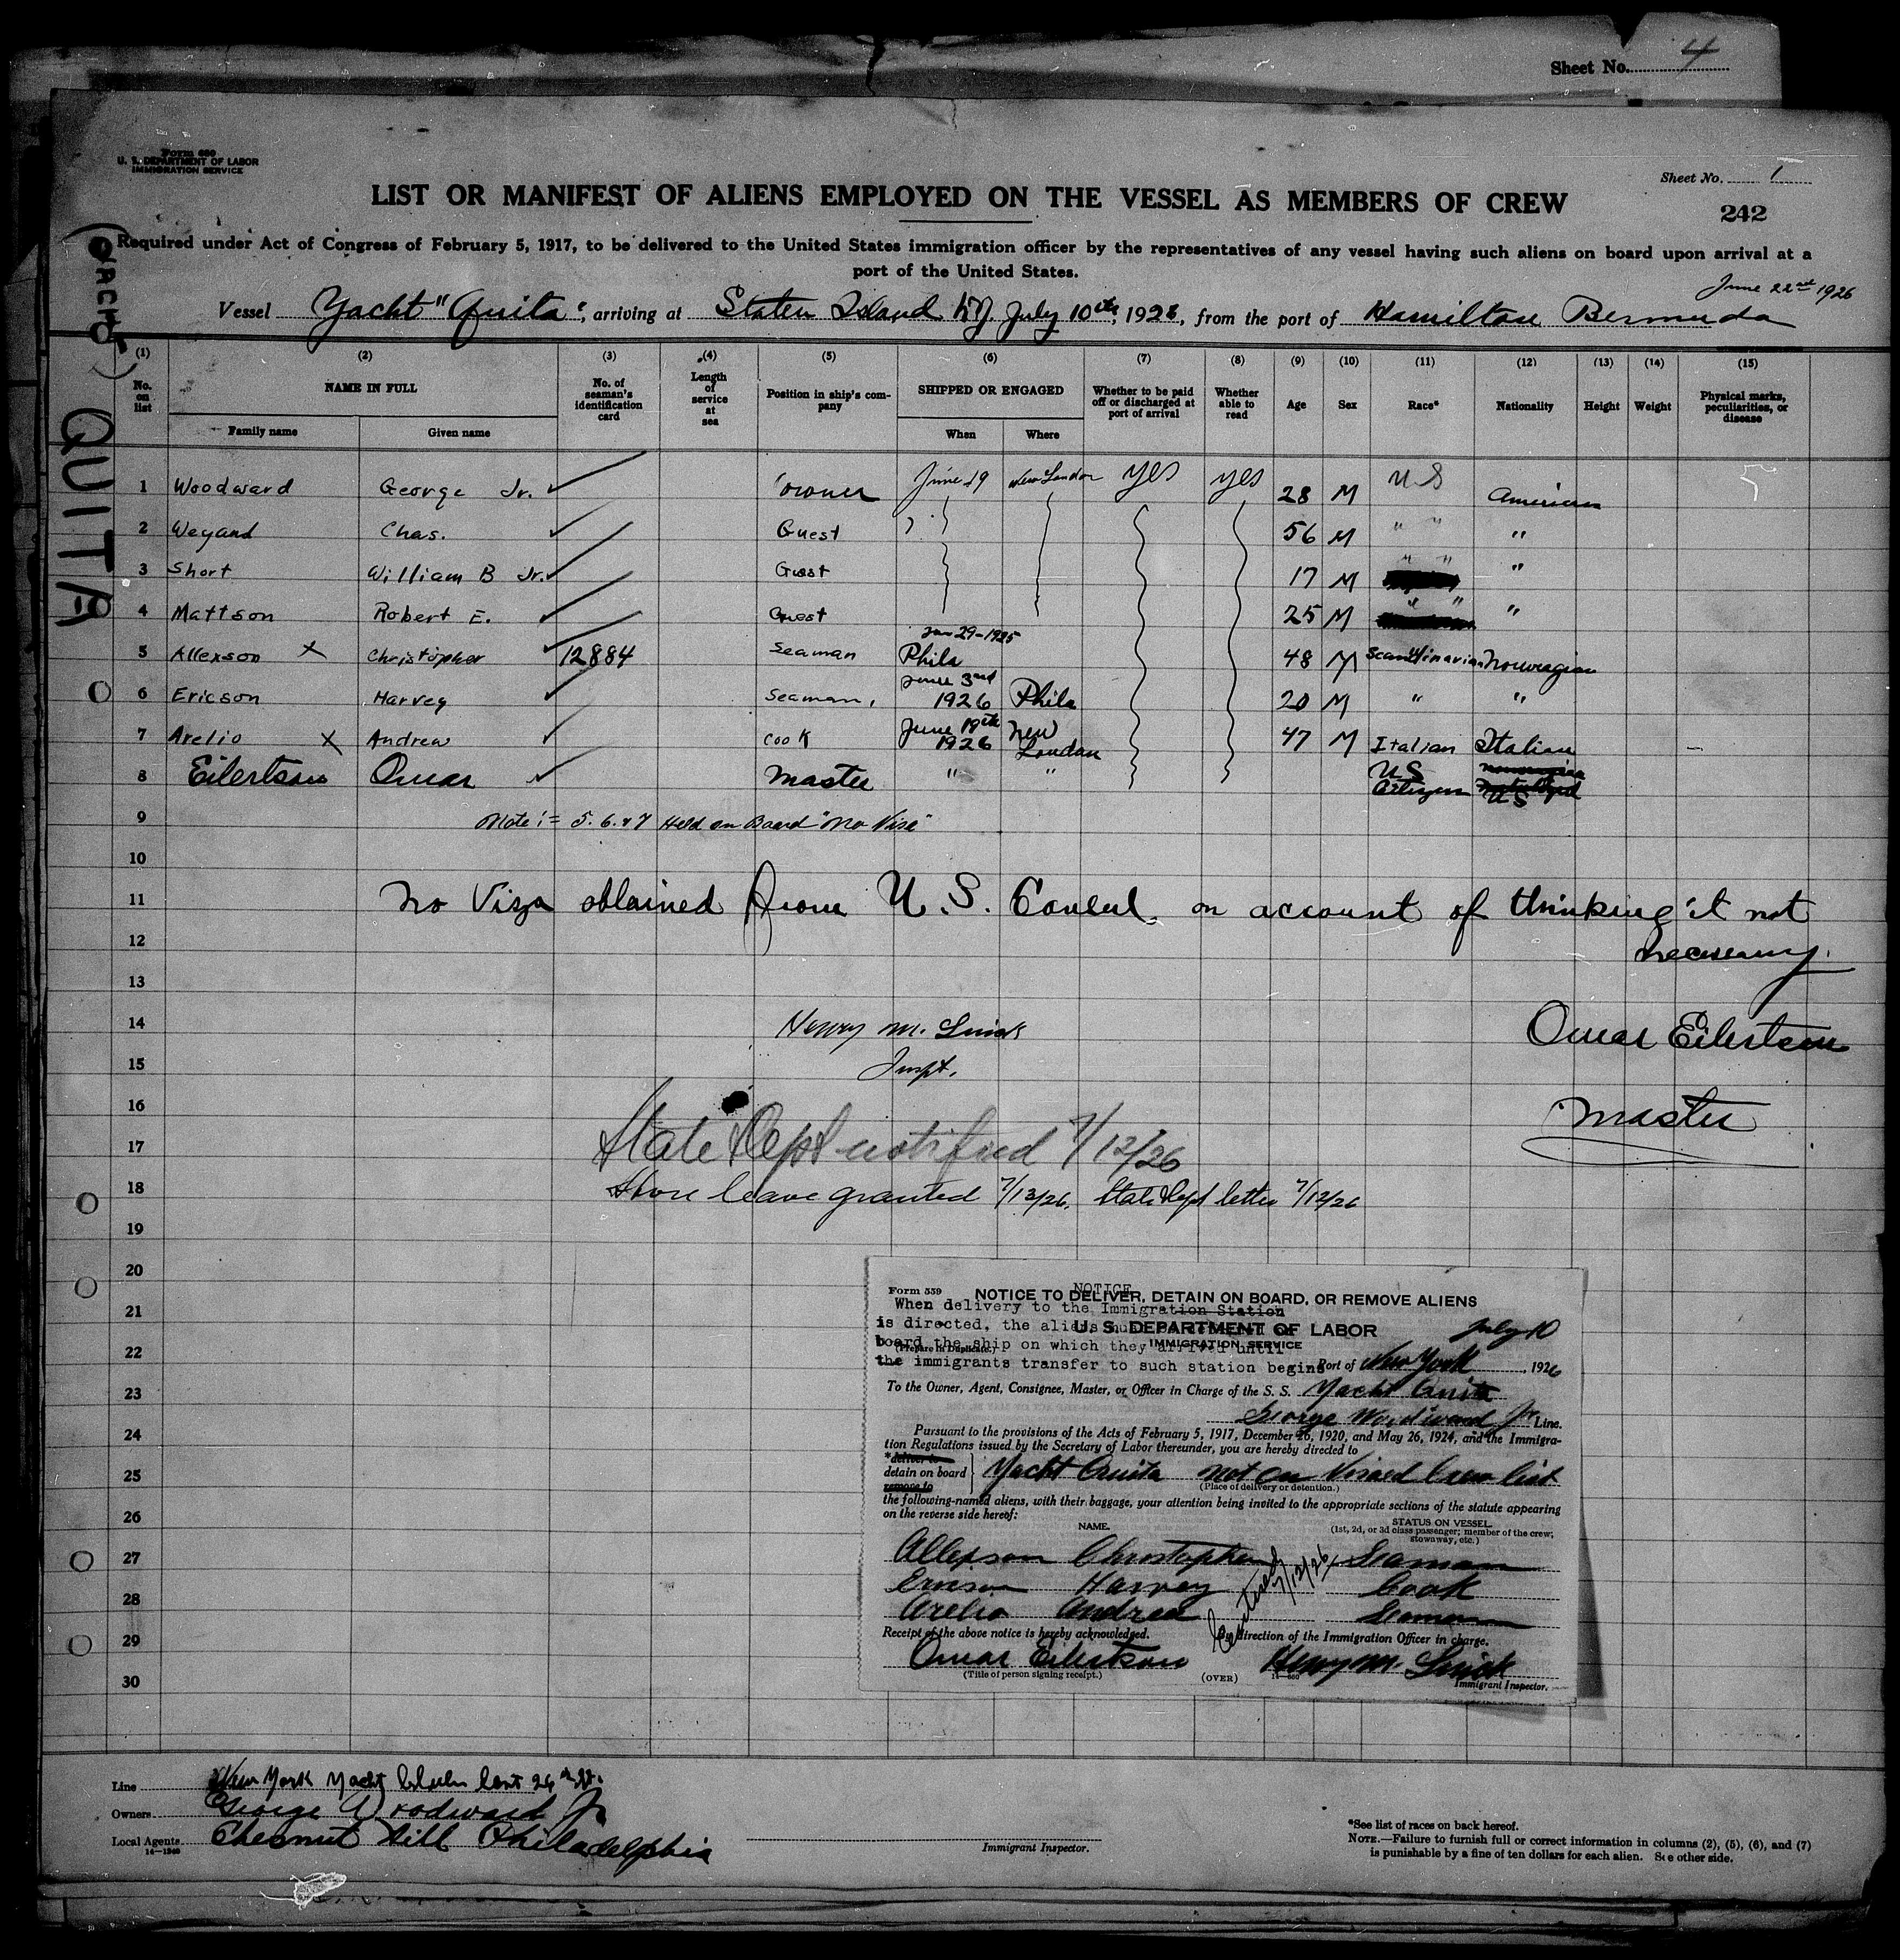 Sheet No. 4
Form 680
U. S. DEPARTMENT OF LABOR
IMMIGRATION SERVICE
Sheet No. 1
LIST OR MANIFEST OF ALIENS EMPLOYED ON THE VESSEL AS MEMBERS OF CREW
242
Required under Act of Congress of February 5, 1917, to be delivered to the United States immigration officer by the representatives of any vessel having such aliens on board upon arrival at a
port of the United States.
June 22nd 1926
Vessel Yacht "Quita", arriving at Staten Island N.Y. July 10th, 1926, from the port of Hamilton Bermuda
(YACHT) QUITA
(1) (2) (3) (4) (5) (6) (7) (8) (9) (10) (11) (12) (13) (14) (15)
No. on list NAME IN FULL No. of seaman's identification card Length of service at sea Position in ship's company SHIPPED OR ENGAGED Whether to be paid off or discharged at port of arrival Whether able to read Age Sex Race* Nationality Height Weight Physical marks, peculiarities, or disease
Family name Given name When Where
1 Woodward George Jr. owner June 19 New London yes yes 28 M U.S American
2 Weyand Chas. Guest 56 M " " "
3 Short William B Jr. Guest 17 M " " "
4 Mattson Robert E. Guest 25 M " " "
5 Allexson X Christopher 12884 Seaman Jan 29-1925 Phila 48 M Scandinavian Norwegian
6 Ericson Harvey Seaman, June 3rd 1926 Phila 20 M " "
7 Arelio X Andrew cook June 19th 1926 New London 47 M Italian Italian
8 Eilertsen Omar Master " " U S Citizen U S
9 Note:= 5.6.&7 Held on Board "No Visa"
10
11 No Visa obtained from U.S. Consul, on account of thinking it not
12 necessary.
13
14 Henry M. Omar Eilertsen
15 Inspt.
16 Master
17 State Dept notified 7/12/26
18 Shore leave granted 7/13/26. State Dept letter 7/12/26
19
20
21
22
23
24
25
26
27
28
29
30
Form 539 NOTICE TO DELIVER, DETAIN ON BOARD, OR REMOVE ALIENS
NOTICE
When delivery to the Immigration Station
is directed, the aliens must
U. S. DEPARTMENT OF LABOR July 10
board the ship on which they arrived until
(Prepare in Duplicate.) IMMIGRATION SERVICE
the immigrants transfer to such station begins
Port of New York, 1926
To the Owner, Agent, Consignee, Master, or Officer in Charge of the S. S. Yacht Quita
George Woodward Jr Line.
Pursuant to the provisions of the Acts of February 5, 1917, December 26, 1920, and May 26, 1924, and the Immigra-
tion Regulations issued by the Secretary of Labor thereunder, you are hereby directed to
*deliver to
detain on board Yacht Quita not on Visaed Crew list
remove to (Place of delivery or detention.)
the following-named aliens, with their baggage, your attention being invited to the appropriate sections of the statute appearing
on the reverse side hereof:
NAME. STATUS ON VESSEL.
(1st, 2d, or 3d class passenger; member of the crew;
stowaway, etc.)
Allexson Christopher Seaman
Ericson Harvey Cook
Arelio Andrea Seaman
7/12/26
Receipt of the above notice is hereby acknowledged. By direction of the Immigration Officer in charge.
Omar Eilertsen Henry M.
(Title of person signing receipt.) (OVER) Immigrant Inspector.
Line New York Yacht Club
Owners George Woodward Jr
Local Agents Chesnut Hill Philadelphia
14—1240
Immigrant Inspector.
*See list of races on back hereof.
NOTE.—Failure to furnish full or correct information in columns (2), (5), (6), and (7)
is punishable by a fine of ten dollars for each alien. See other side.